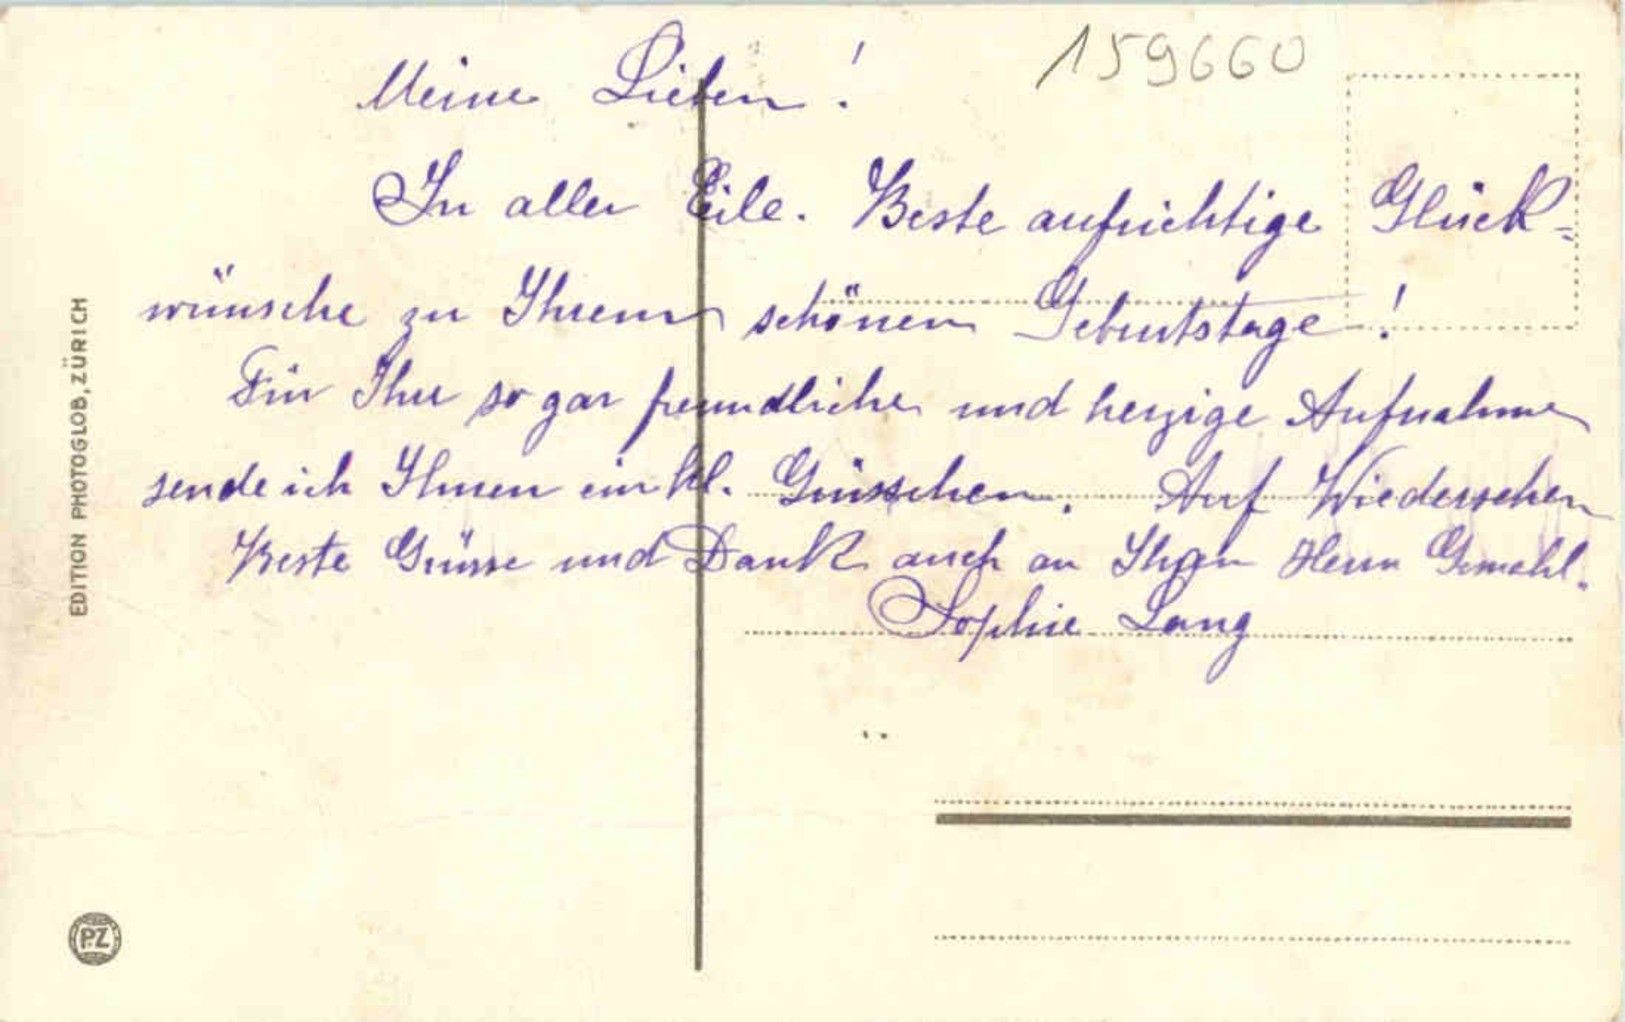 159660
Meine Lieben!
In aller Eile. Beste aufrichtige Glück-
wünsche zu Ihrem schönen Geburtstage!
Für Ihre so gar freundliche und herzige Aufnahme
sende ich Ihnen ein kl. Grüsschen. Auf Wiedersehen
Beste Grüsse und Dank auch an Ihren Herrn Gemahl.
Sophie Lang
EDITION PHOTOGLOB, ZÜRICH
PZ